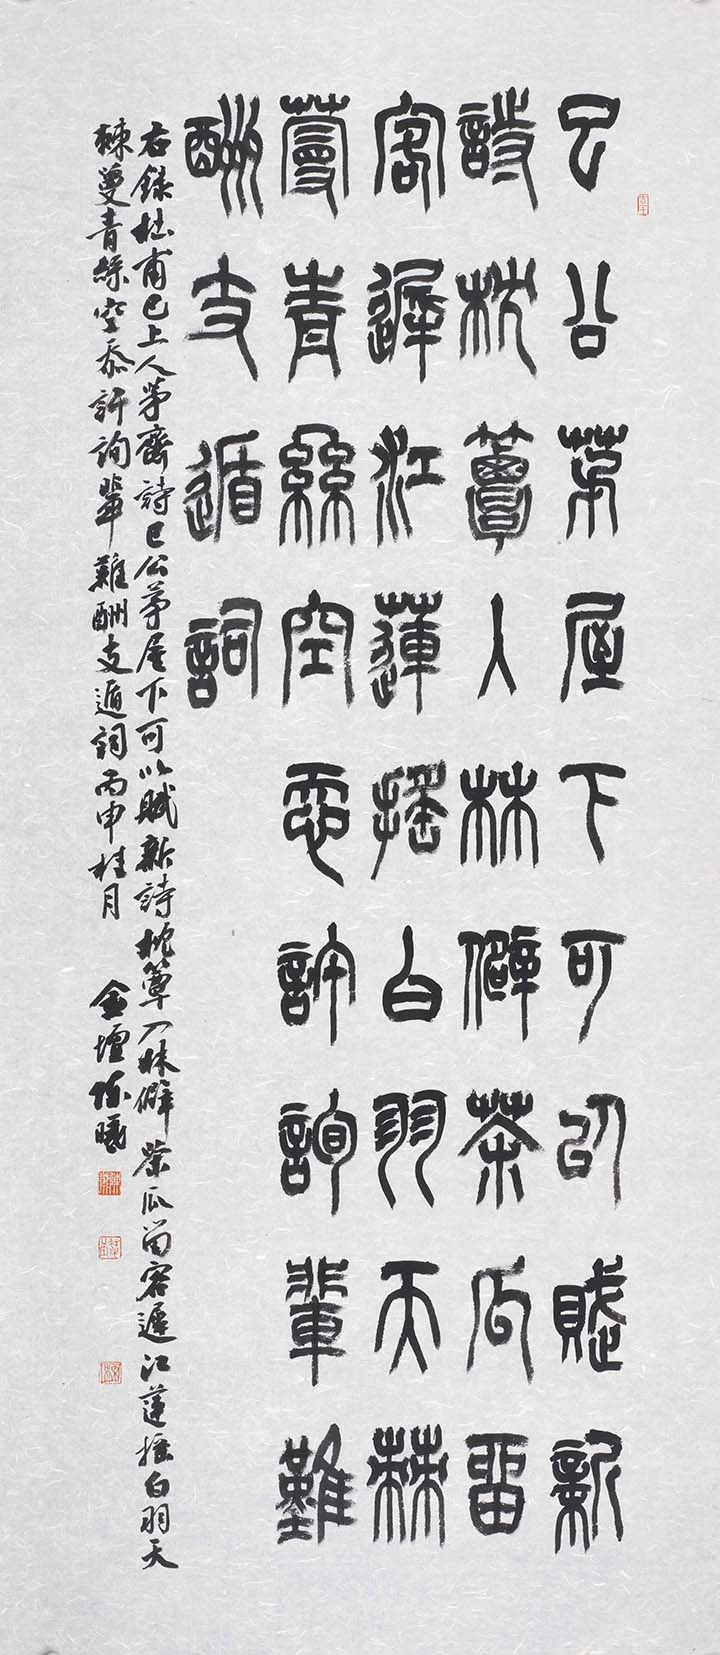 巳公茅屋下可以賦新
詩枕簟入林僻茶瓜留
客遲江蓮搖白羽天棘
蔓青絲空忝許詢輩難
酬支遁詞
右錄杜甫巳上人茅齋詩巳公茅屋下可以賦新詩枕簟入林僻茶瓜留客遲江蓮搖白羽天
棘蔓青絲空忝許詢輩難酬支遁詞丙申桂月 金壇陈曦